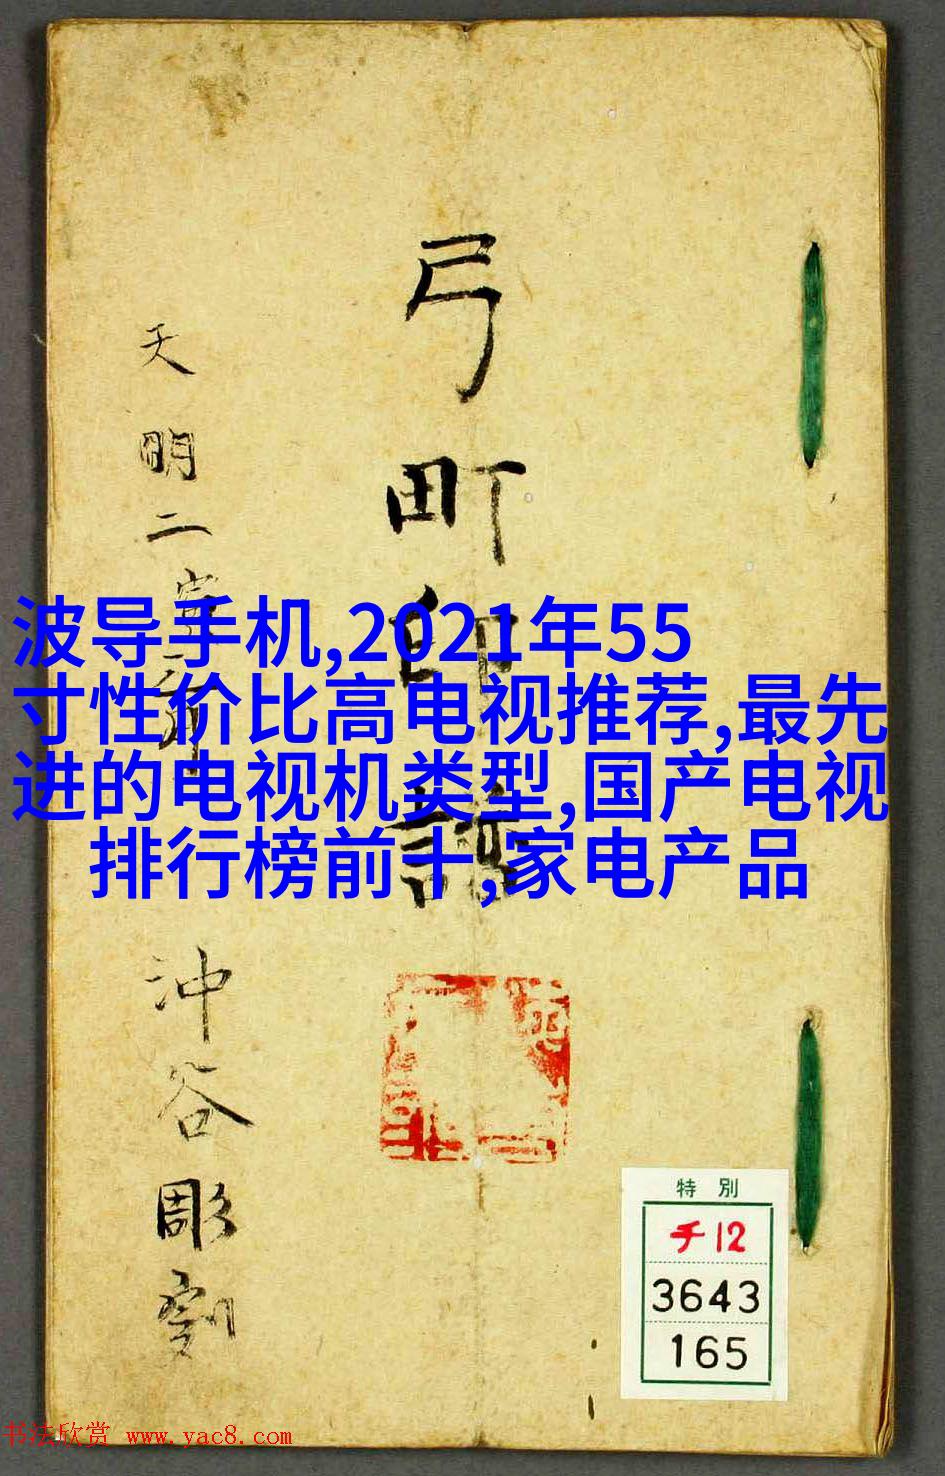 弓町印譜
天明二寅年
沖谷彫刻
波导手机,2021年55
寸性价比高电视推荐,最先
进的电视机类型,国产电视
排行榜前十,家电产品
特別
チ12
3643
165
书法欣赏 www.yac8.com